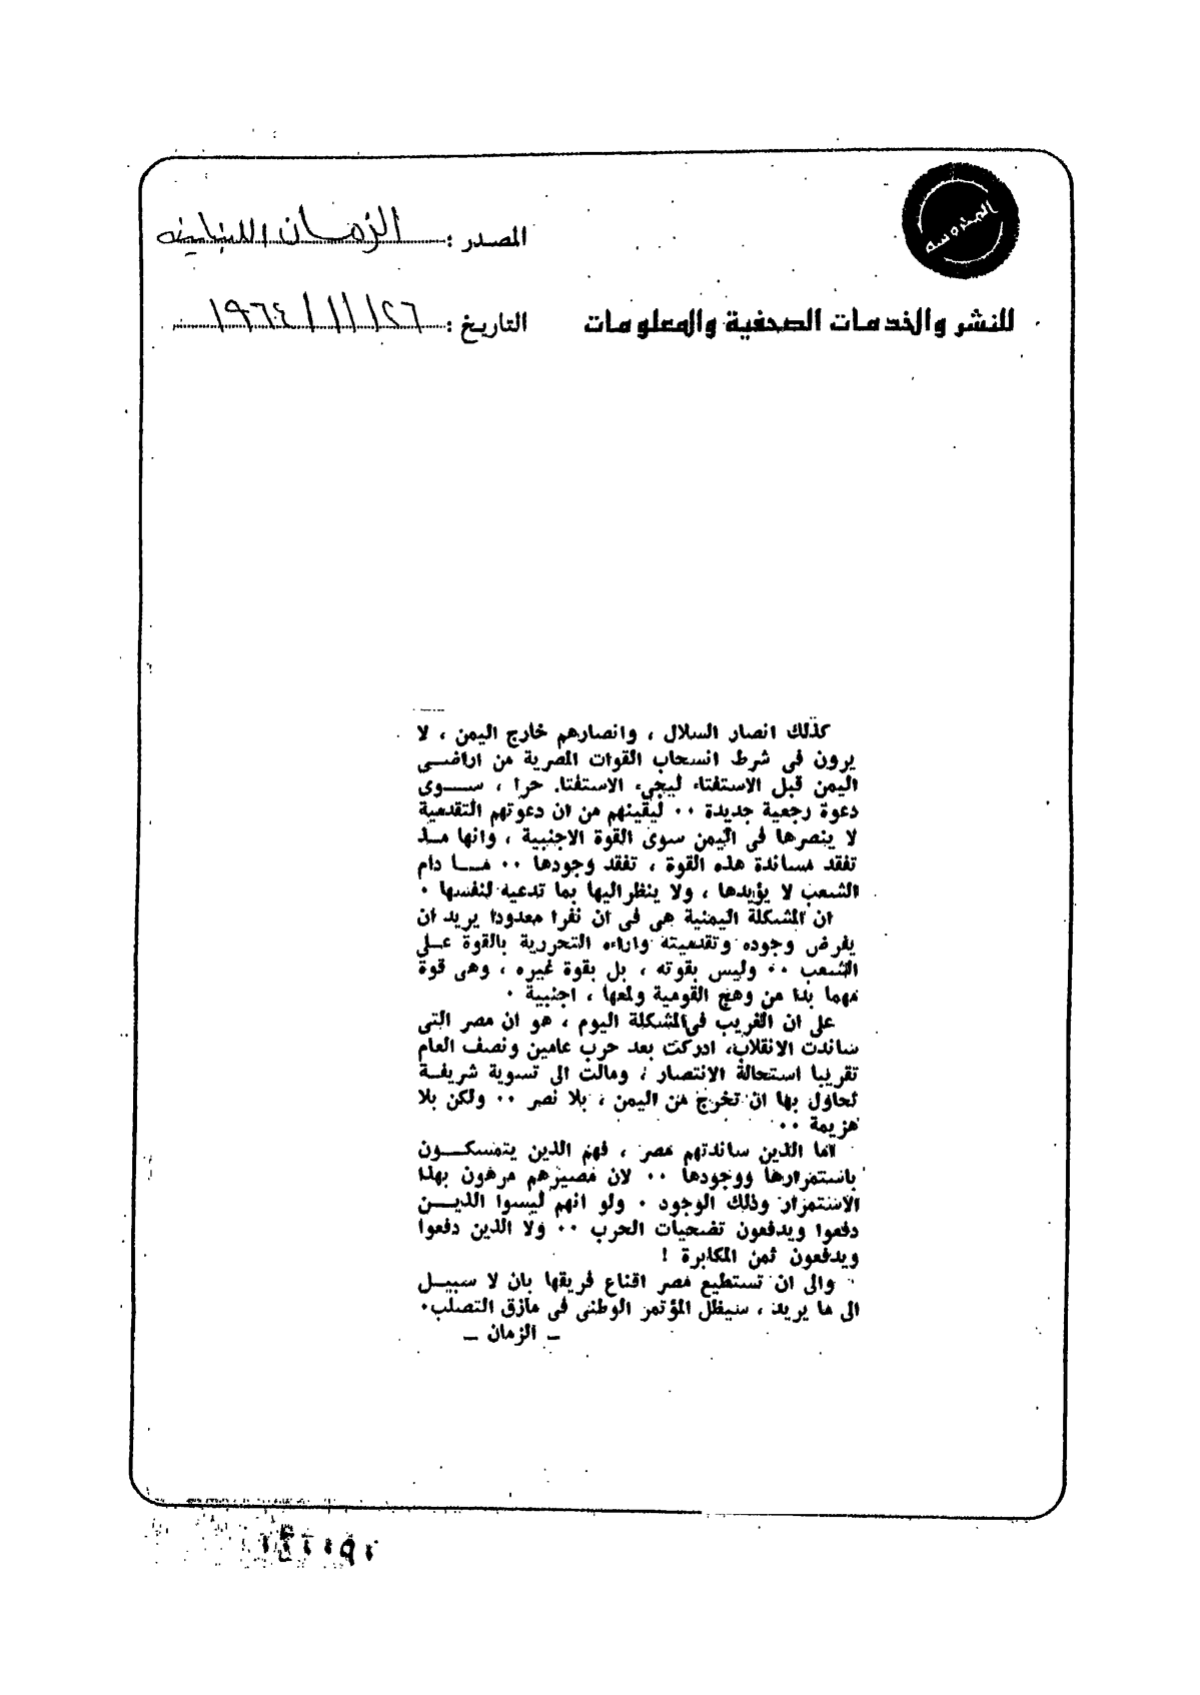 المحروسه
المصدر : الزمان اللبنانية
للنشر والخدمات الصحفية والمعلومات
التاريخ : ٢٦/١١/١٩٦٤
كذلك انصار السلال ، وانصارهم خارج اليمن ، لا
يرون فى شرط انسحاب القوات المصرية من اراضــى
اليمن قبل الاستفتاء ليجىء الاستفتاء حرا ، ســـوى
دعوة رجعية جديدة ٠٠ ليقينهم من ان دعوتهم التقدمية
لا ينصرها فى اليمن سوى القوة الاجنبية ، وانها مــذ
تفقد مساندة هذه القوة ، تفقد وجودها ٠٠ مـــا دام
الشعب لا يؤيدها ، ولا ينظر اليها بما تدعيه لنفسها ٠
ان المشكلة اليمنية هى فى ان نفرا معدودا يريد ان
يفرض وجوده وتقدميته واراءه التحررية بالقوة علــى
الشعب ٠٠ وليس بقوته ، بل بقوة غيره ، وهى قوة
مهما بدا من وهج القومية ولمعها ، اجنبية ٠
على ان الغريب فى المشكلة اليوم ، هو ان مصر التى
ساندت الانقلاب، ادركت بعد حرب عامين ونصف العام
تقريبا استحالة الانتصار ، ومالت الى تسوية شريفــة
تحاول بها ان تخرج من اليمن ، بلا نصر ٠٠ ولكن بلا
هزيمة ٠٠
اما الذين ساندتهم مصر ، فهم الذين يتمسكـــون
باستمرارها ووجودها ٠٠ لان مصيرهم مرهون بهذا
الاستمرار وذلك الوجود ٠ ولو انهم ليسوا الذيـــن
دفعوا ويدفعون تضحيات الحرب ٠٠ ولا الذين دفعوا
ويدفعون ثمن المكابرة !
والى ان تستطيع مصر اقناع فريقها بان لا سبيــل
الى ما يريد ، سيظل المؤتمر الوطنى فى مازق التصلب٠
ـ الزمان ـ